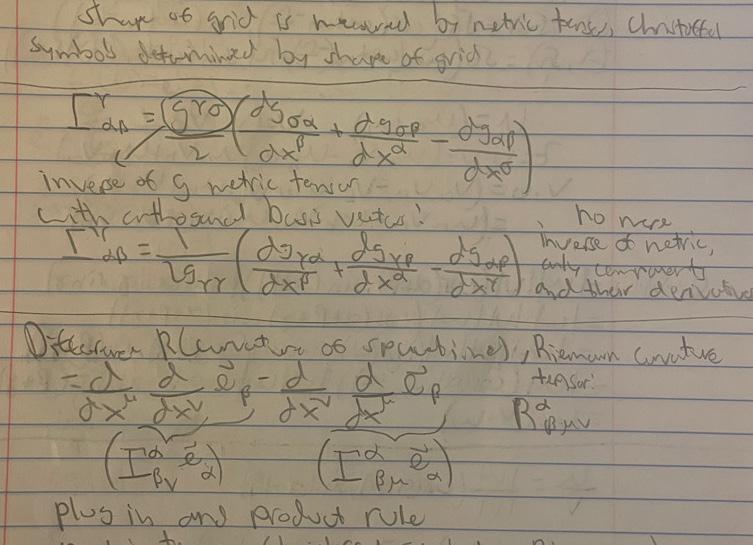 shape of grid is measured by metric tensor, Christoffel
symbols determined by shape of grid
Γ^γ_αβ = g^γσ/2 (dg_σα/dx^β + dg_σβ/dx^α − dg_αβ/dx^σ)
inverse of g metric tensor
with orthogonal basis vectors:
Γ^γ_αβ = 1/2g_γγ (dg_γα/dx^β + dg_γβ/dx^α − dg_αβ/dx^γ)
no more
inverse of metric,
only components
and their derivative
Difference R(curvature of spacetime), Riemann curvature
tensor:
= d/dx^μ d/dx^ν e⃗_β − d/dx^ν d/dx^μ e⃗_β
R^α_βμν
(Γ^α_βν e⃗_α) (Γ^α_βμ e⃗_α)
plug in and product rule